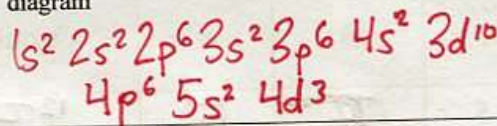 diagram
1s² 2s² 2p⁶ 3s² 3p⁶ 4s² 3d¹⁰
4p⁶ 5s² 4d³